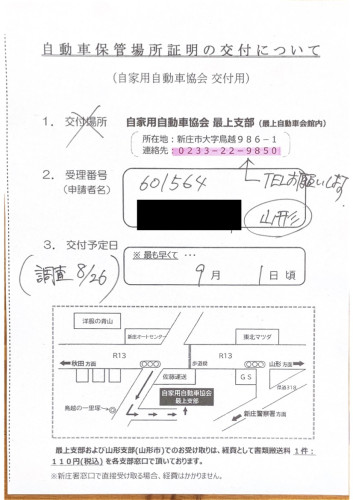 自動車保管場所証明の交付について
（自家用自動車協会 交付用）
1. 交付場所
自家用自動車協会 最上支部（最上自動車会館内）
所在地：新庄市大字鳥越９８６－１
連絡先：０２３３－２２－９８５０
2. 受理番号
（申請者名）
601564
TELお願いします
山形
3. 交付予定日
（調査 8/26）
※ 最も早くて ・・・
9月 1日頃
洋服の青山
新庄オートセンター
東北マツダ
秋田 方面
R13
歩道橋
R13
山形 方面
佐藤運送
ＧＳ
県道３１０
自家用自動車協会
最上支部
鳥越の一里塚
新庄警察署 方面
最上支部および山形支部(山形市)でのお受け取りは、経費として書類搬送料 １件：
１１０円(税込) を各支部窓口で頂いております。
※新庄署窓口で直接受け取る場合、経費はかかりません。